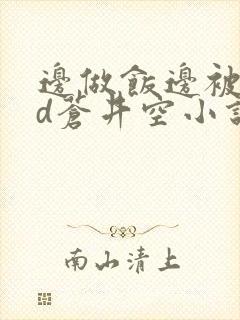 邊做飯邊被
d蒼井空小說
南山清上